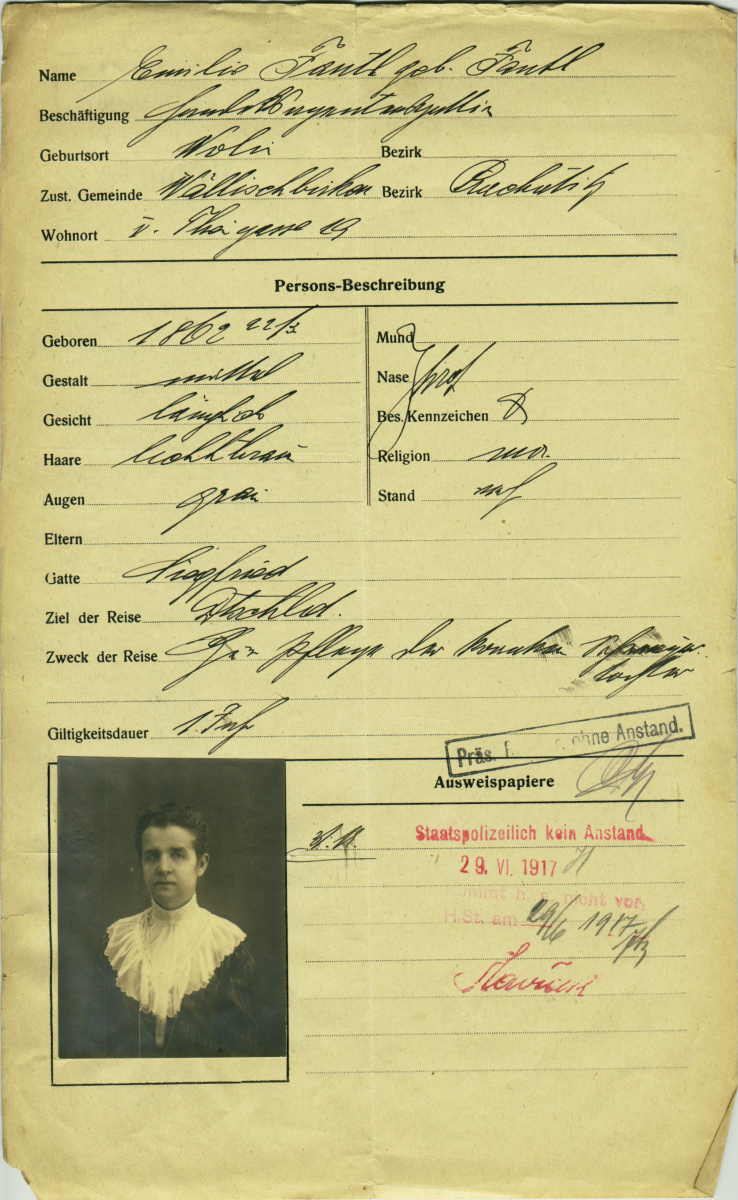 Name Emilie Fantl geb. Fantl
Beschäftigung Handelsagentensgattin
Geburtsort Wolin Bezirk
Zust. Gemeinde Wällischbirken Bezirk Prachatitz
Wohnort V.
Persons-Beschreibung
Geboren 1862 22/3 Mund
Gestalt mittel Nase prop
Gesicht länglich Bes. Kennzeichen
Haare lichtbraun Religion mos.
Augen grau Stand verh
Eltern
Gatte Siegfried
Ziel der Reise Dtschld.
Zweck der Reise Zur Pflege der kranken Schwieger-
tochter
Giltigkeitsdauer 1 Jahr
Präs. ohne Anstand.
Ausweispapiere
Staatspolizeilich kein Anstand
29. VI. 1917
nicht vor.
H.St. am 29/6 1917